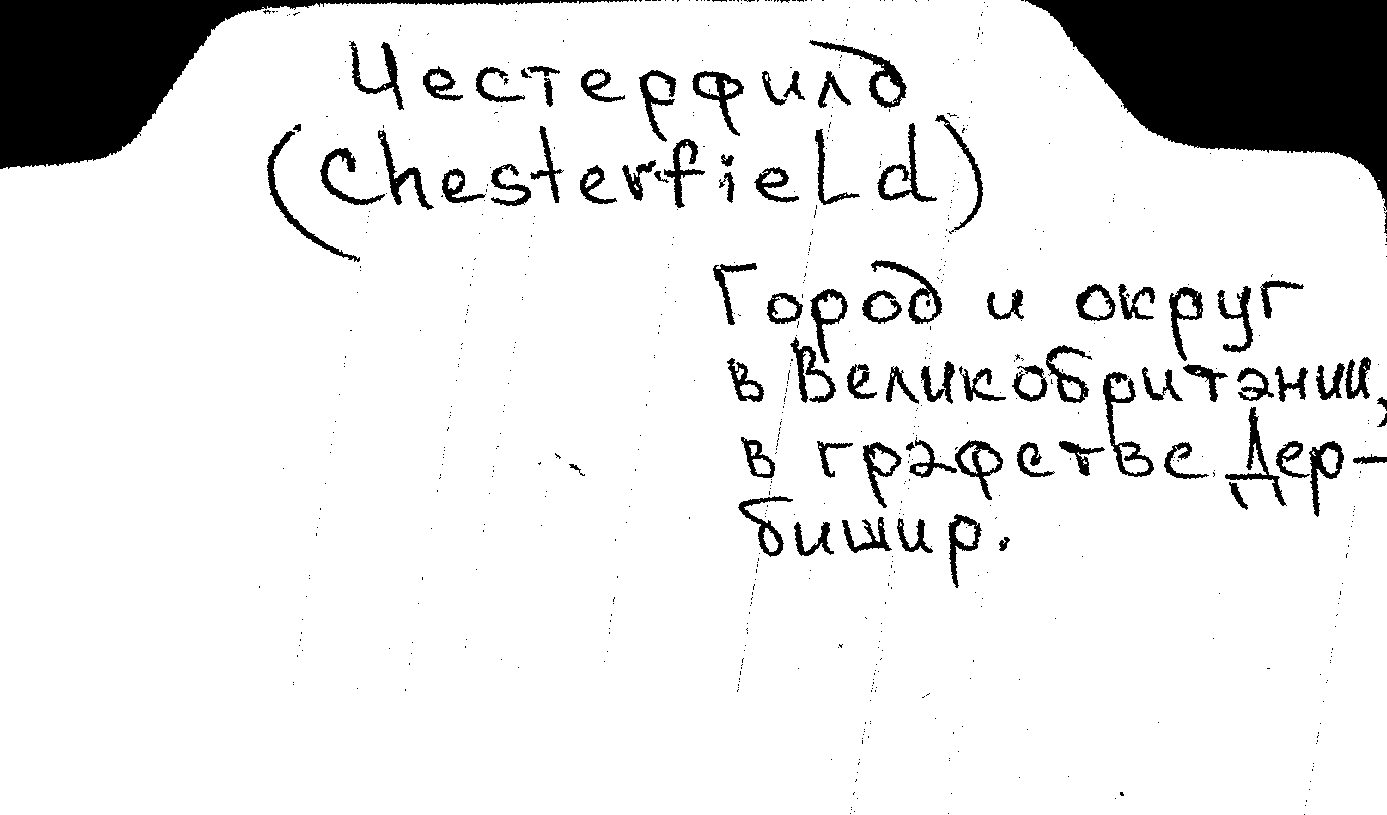 Честерфилд
(Chesterfield)
Город и округ
в Великобритании,
в графстве Дер-
бишир.